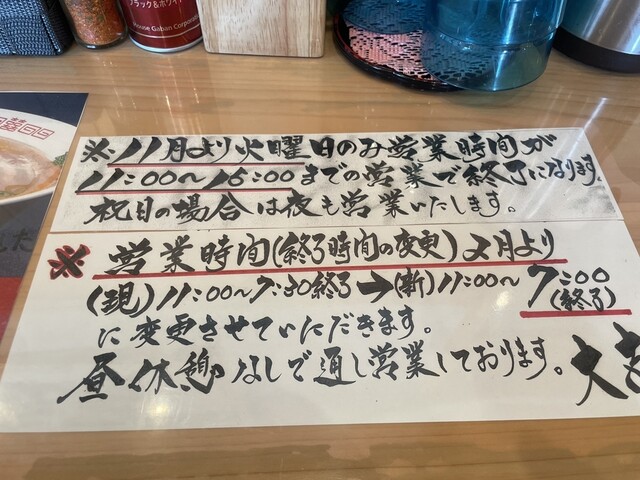 ブラック&ホワイト
House Gaban Corporation
※11月より火曜日のみ営業時間が
11:00〜15:00までの営業で終了になります。
祝日の場合は夜も営業いたします。
※営業時間(終了時間の変更)2月より
(現)11:00〜7:30終了→(新)11:00〜7:00(終了)
に変更させていただきます。
昼休憩なしで通し営業しております。大